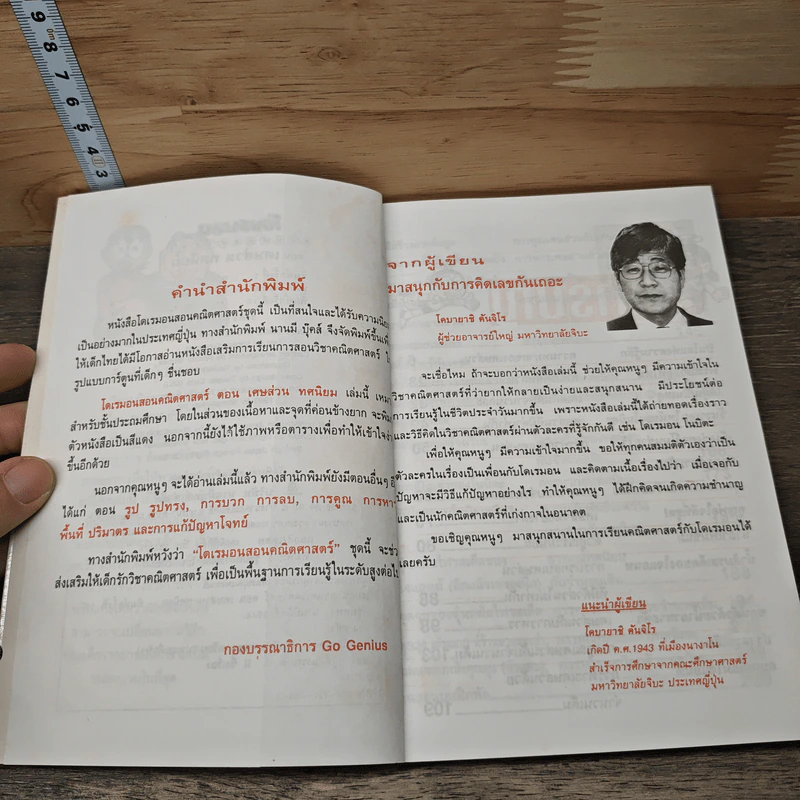 คำนำสำนักพิมพ์
หนังสือโดเรมอนสอนคณิตศาสตร์ชุดนี้ เป็นที่สนใจและได้รับความนิย
เป็นอย่างมากในประเทศญี่ปุ่น ทางสำนักพิมพ์ นานมี บุ๊คส์ จึงจัดพิมพ์ขึ้นเพื่
ให้เด็กไทยได้มีโอกาสอ่านหนังสือเสริมการเรียนการสอนวิชาคณิตศาสตร์ ใ
รูปแบบการ์ตูนที่เด็กๆ ชื่นชอบ
โดเรมอนสอนคณิตศาสตร์ ตอน เศษส่วน ทศนิยม เล่มนี้ เหม
สำหรับชั้นประถมศึกษา โดยในส่วนของเนื้อหาและจุดที่ค่อนข้างยาก จะพิม
ตัวหนังสือเป็นสีแดง นอกจากนี้ยังไว้ใช้ภาพหรือตารางเพื่อทำให้เข้าใจง่า
ขึ้นอีกด้วย
นอกจากคุณหนูๆ จะได้อ่านเล่มนี้แล้ว ทางสำนักพิมพ์ยังมีตอนอื่นๆ อี
ได้แก่ ตอน รูป รูปทรง, การบวก การลบ, การคูณ การหา
พื้นที่ ปริมาตร และการแก้ปัญหาโจทย์
ทางสำนักพิมพ์หวังว่า "โดเรมอนสอนคณิตศาสตร์" ชุดนี้ จะช่ว
ส่งเสริมให้เด็กรักวิชาคณิตศาสตร์ เพื่อเป็นพื้นฐานการเรียนรู้ในระดับสูงต่อไป
กองบรรณาธิการ Go Genius
จากผู้เขียน
มาสนุกกับการคิดเลขกันเถอะ
โคบายาชิ คันจิโร
ผู้ช่วยอาจารย์ใหญ่ มหาวิทยาลัยจิบะ
จะเชื่อไหม ถ้าจะบอกว่าหนังสือเล่มนี้ ช่วยให้คุณหนูๆ มีความเข้าใจใน
วิชาคณิตศาสตร์ที่ว่ายากให้กลายเป็นง่ายและสนุกสนาน มีประโยชน์ต่อ
การเรียนรู้ในชีวิตประจำวันมากขึ้น เพราะหนังสือเล่มนี้ได้ถ่ายทอดเรื่องราว
และวิธีคิดในวิชาคณิตศาสตร์ผ่านตัวละครที่รู้จักกันดี เช่น โดเรมอน โนบิตะ
เพื่อให้คุณหนูๆ มีความเข้าใจมากขึ้น ขอให้ทุกคนสมมติตัวเองว่าเป็น
ตัวละครในเรื่องเป็นเพื่อนกับโดเรมอน และคิดตามเนื้อเรื่องไปว่า เมื่อเจอกับ
ปัญหาจะมีวิธีแก้ปัญหาอย่างไร ทำให้คุณหนูๆ ได้ฝึกคิดจนเกิดความชำนาญ
และเป็นนักคณิตศาสตร์ที่เก่งกาจในอนาคต
ขอเชิญคุณหนูๆ มาสนุกสนานในการเรียนคณิตศาสตร์กับโดเรมอนได้
เลยครับ
แนะนำผู้เขียน
โคบายาชิ คันจิโร
เกิดปี ค.ศ.1943 ที่เมืองนางาโน
สำเร็จการศึกษาจากคณะศึกษาศาสตร์
มหาวิทยาลัยจิบะ ประเทศญี่ปุ่น
9
8
7
6
5
4
3